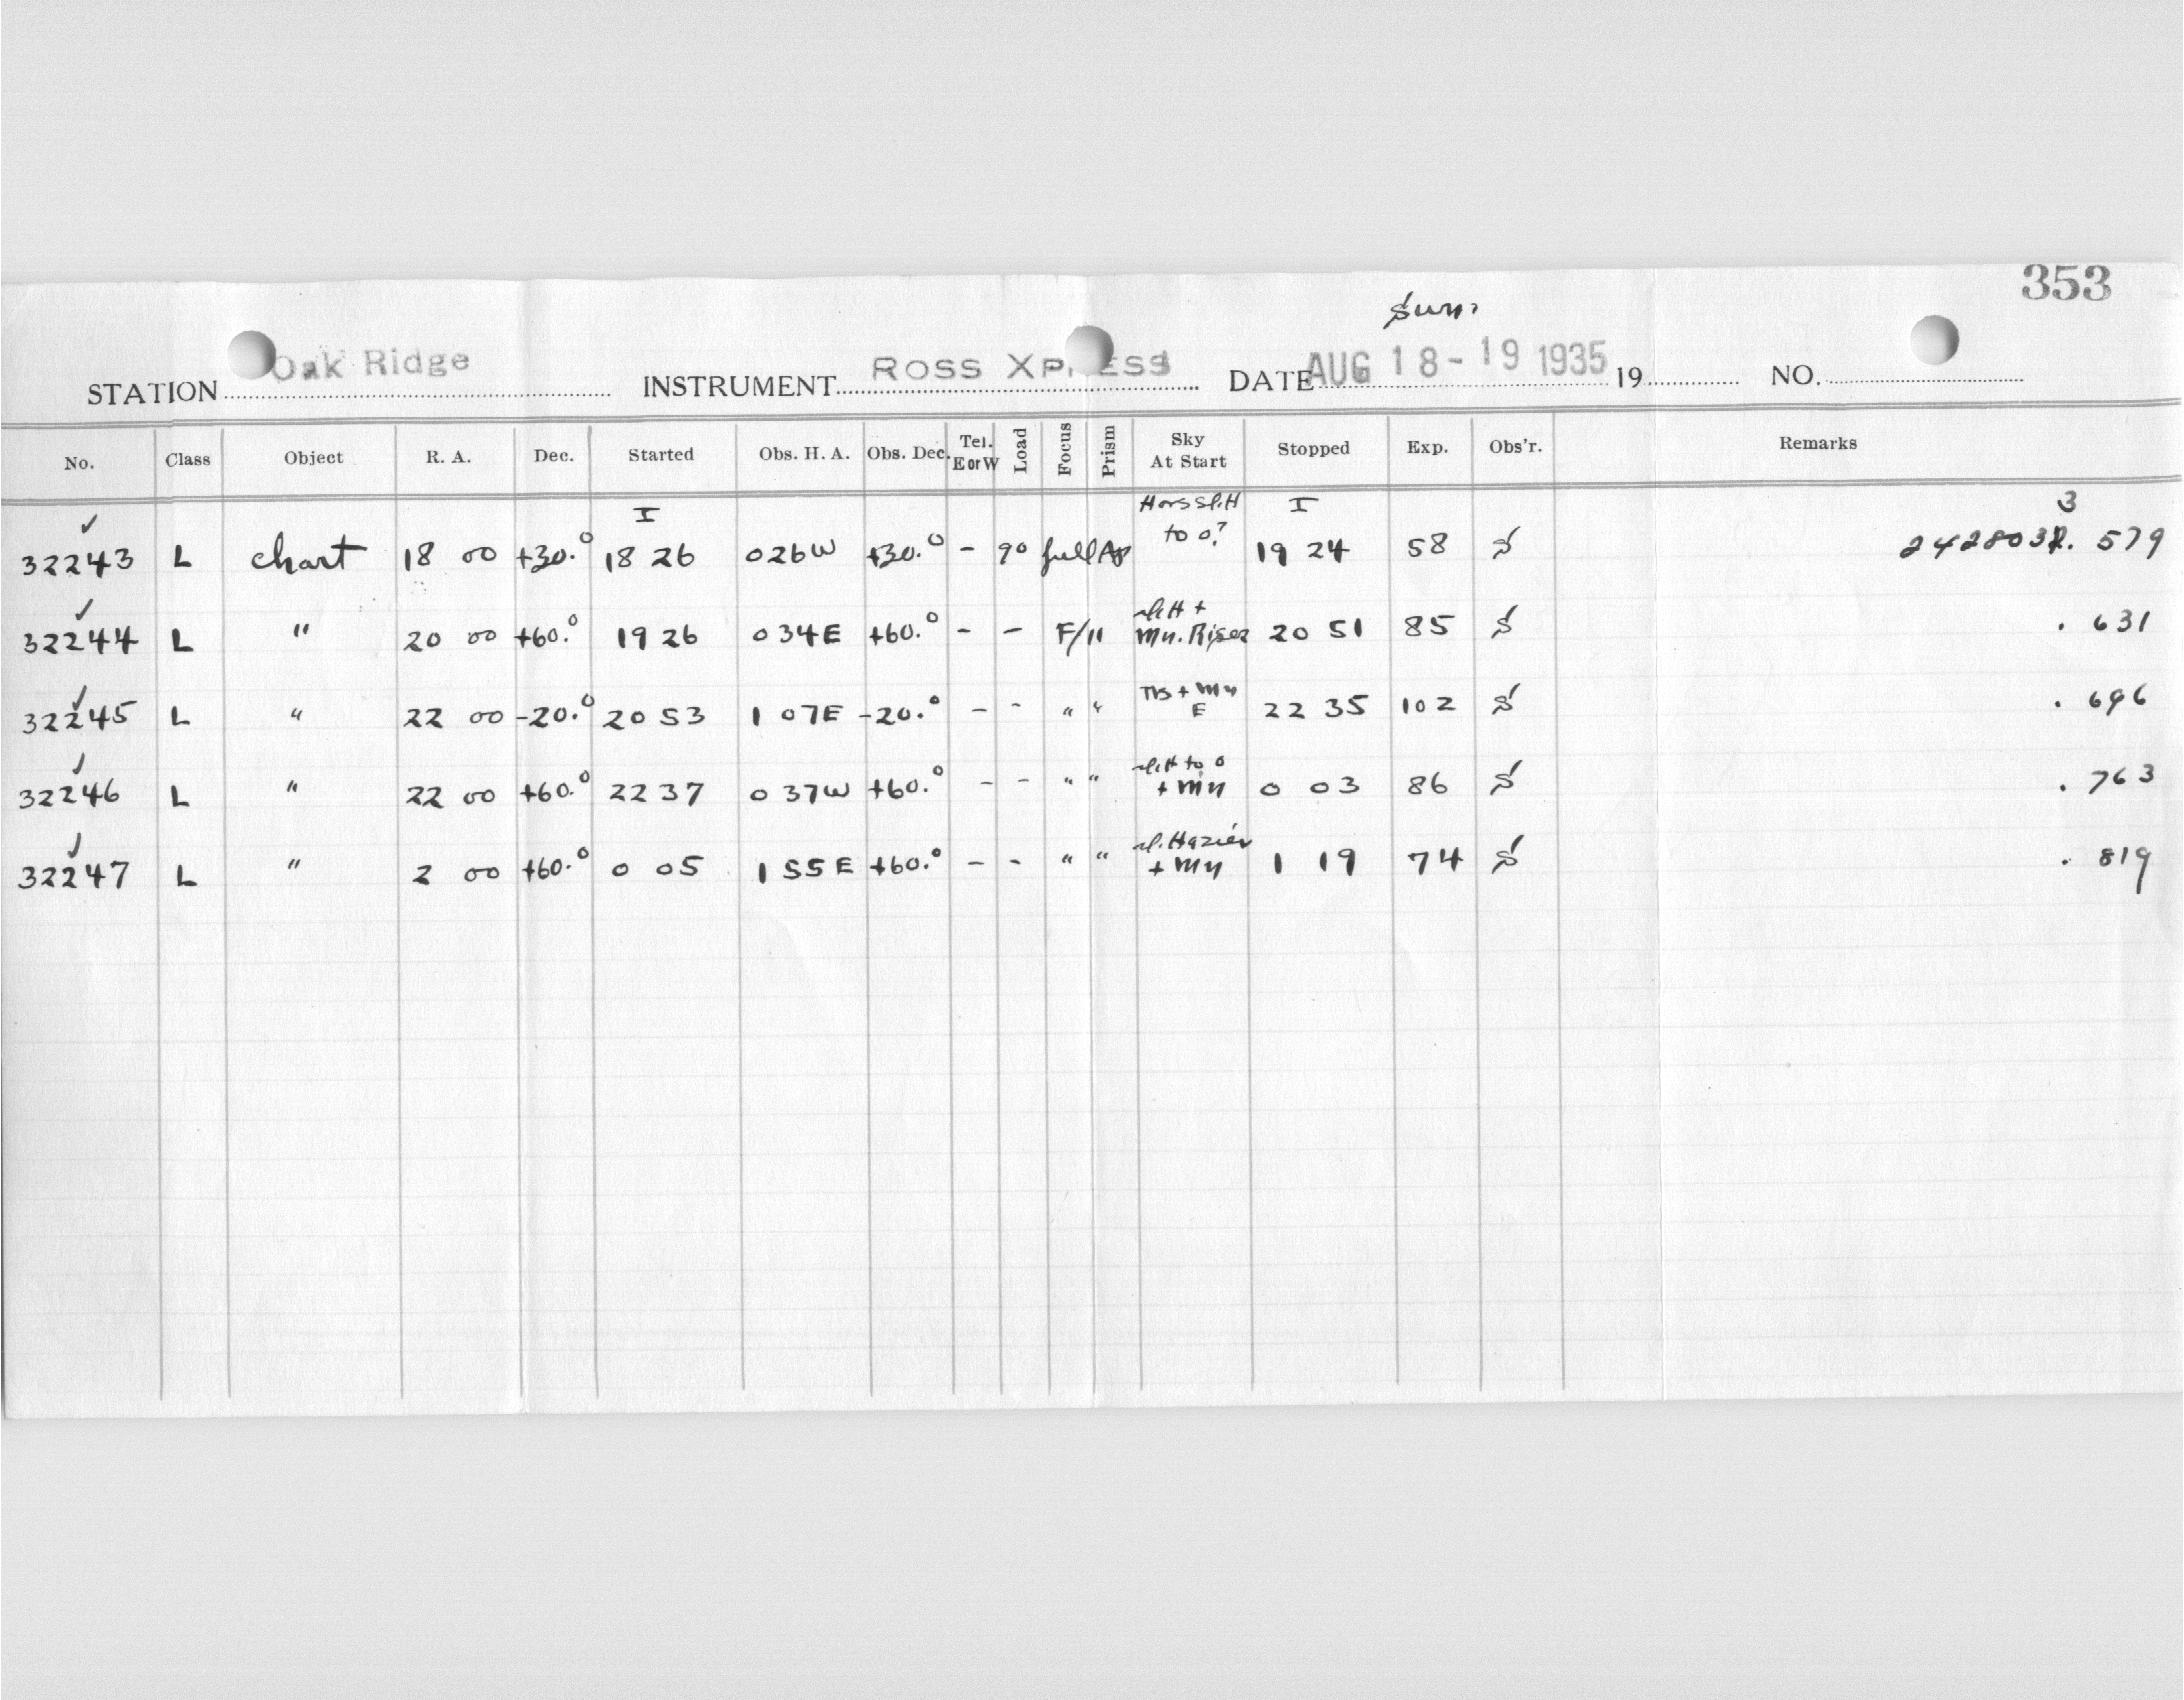 353
Sun.
STATION Oak Ridge INSTRUMENT ROSS XPRESS DATE AUG 18-19 1935 19 NO.
No. Class Object R. A. Dec. Started Obs. H. A. Obs. Dec. Tel. E or W Load Focus Prism Sky At Start Stopped Exp. Obs'r. Remarks
✓ I Hors sl. H I 3
32243 L chart 18 00 +30.° 18 26 0 26W +30.° - 90 full Ap to 0? 19 24 58 S 2428032. 579
✓ sl. H +
32244 L " 20 00 +60.° 19 26 0 34E +60.° - - F/11 Mn. Rises 20 51 85 S . 631
✓ + Mn
32245 L " 22 00 -20.° 20 53 1 07E -20.° - - " " E 22 35 102 S . 696
✓ sl. H to 0
32246 L " 22 00 +60.° 22 37 0 37W +60.° - - " " + Mn 0 03 86 S . 763
✓ sl. Hazier
32247 L " 2 00 +60.° 0 05 1 55E +60.° - - " " + Mn 1 19 74 S . 819